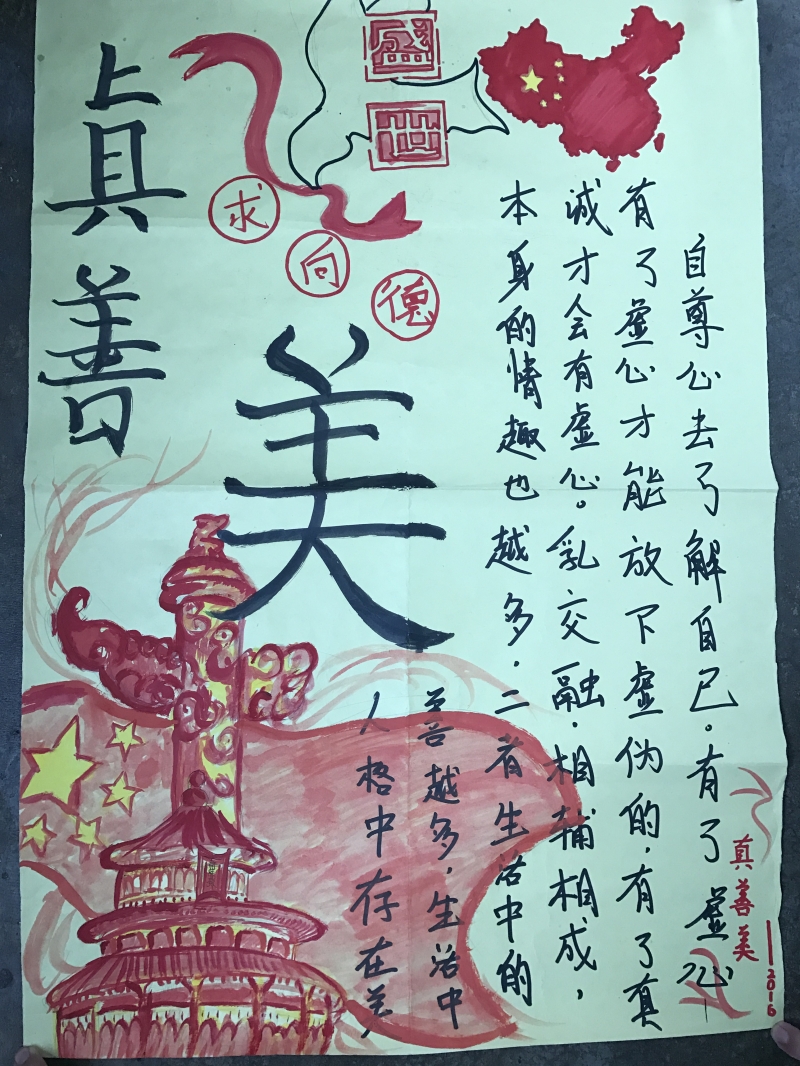 真善
美
盛世
求向德
自尊心去了解自己。有了虚心
有了虚心才能放下虚伪的,有了真
诚才会有虚心。乳交融,相辅相成,
本身的情趣也越多.二者生活中的
善越多,生活中
人格中存在美,
真善美—2016